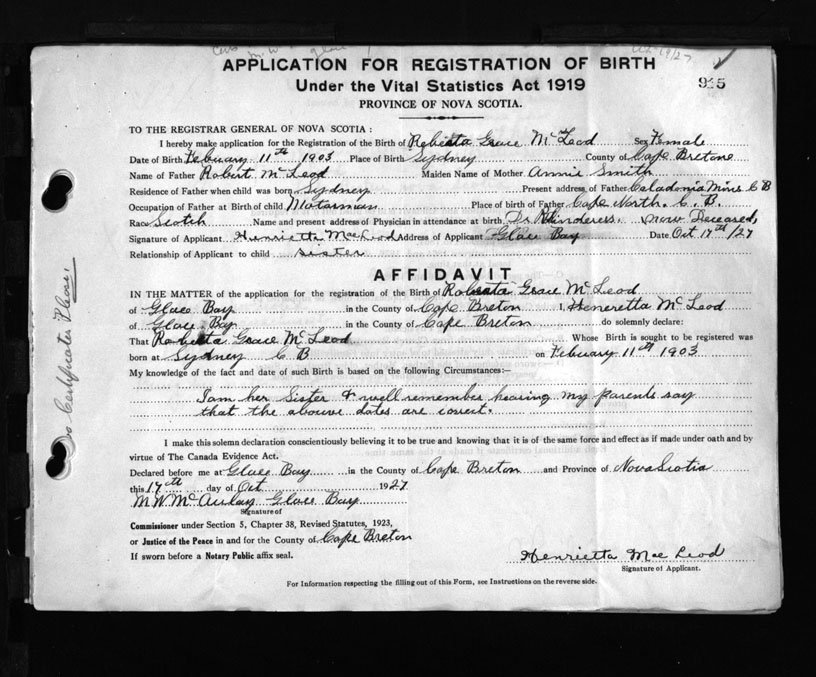 APPLICATION FOR REGISTRATION OF BIRTH
Under the Vital Statistics Act 1919
915
PROVINCE OF NOVA SCOTIA.
TO THE REGISTRAR GENERAL OF NOVA SCOTIA :
I hereby make application for the Registration of the Birth of Roberta Grace McLeod Sex Female
Date of Birth Febuary 11th 1903 Place of Birth Sydney County of Cape Bretone
Name of Father Robert McLeod Maiden Name of Mother Annie Smith
Residence of Father when child was born Sydney Present address of Father Caladonia Mins C B
Occupation of Father at Birth of child Motarman Place of Birth of Father Cape North. C. B.
Race Scotch Name and present address of Physician in attendance at birth Dr Now Deceased,
Signature of Applicant Henrietta MacLeod Address of Applicant Glace Bay Date Oct 17th/27
Relationship of Applicant to child sister
AFFIDAVIT
IN THE MATTER of the application for the registration of the Birth of Roberta Grace McLeod
of Glace Bay in the County of Cape Breton I, Heneretta McLeod
of Glace Bay in the County of Cape Breton do solemnly declare:
That Roberta Grace McLeod Whose Birth is sought to be registered was
born at Sydney C B on Febuary 11th 1903
My knowledge of the fact and date of such Birth is based on the following Circumstances:—
I am her Sister & well remember hearing my parents say
that the abouve dates are corect.
I make this solemn declaration conscientiously believing it to be true and knowing that it is of the same force and effect as if made under oath and by
virtue of The Canada Evidence Act.
Declared before me at Glace Bay in the County of Cape Breton and Province of Nova Scotia
this 17th day of Oct 1927
M W McAulay Glace Bay
Signature of
Commissioner under Section 5, Chapter 38, Revised Statutes, 1923,
or Justice of the Peace in and for the County of Cape Breton
If sworn before a Notary Public affix seal.
Henrietta MacLeod
Signature of Applicant.
For Information respecting the filling out of this Form, see Instructions on the reverse side.
Certificates Please,